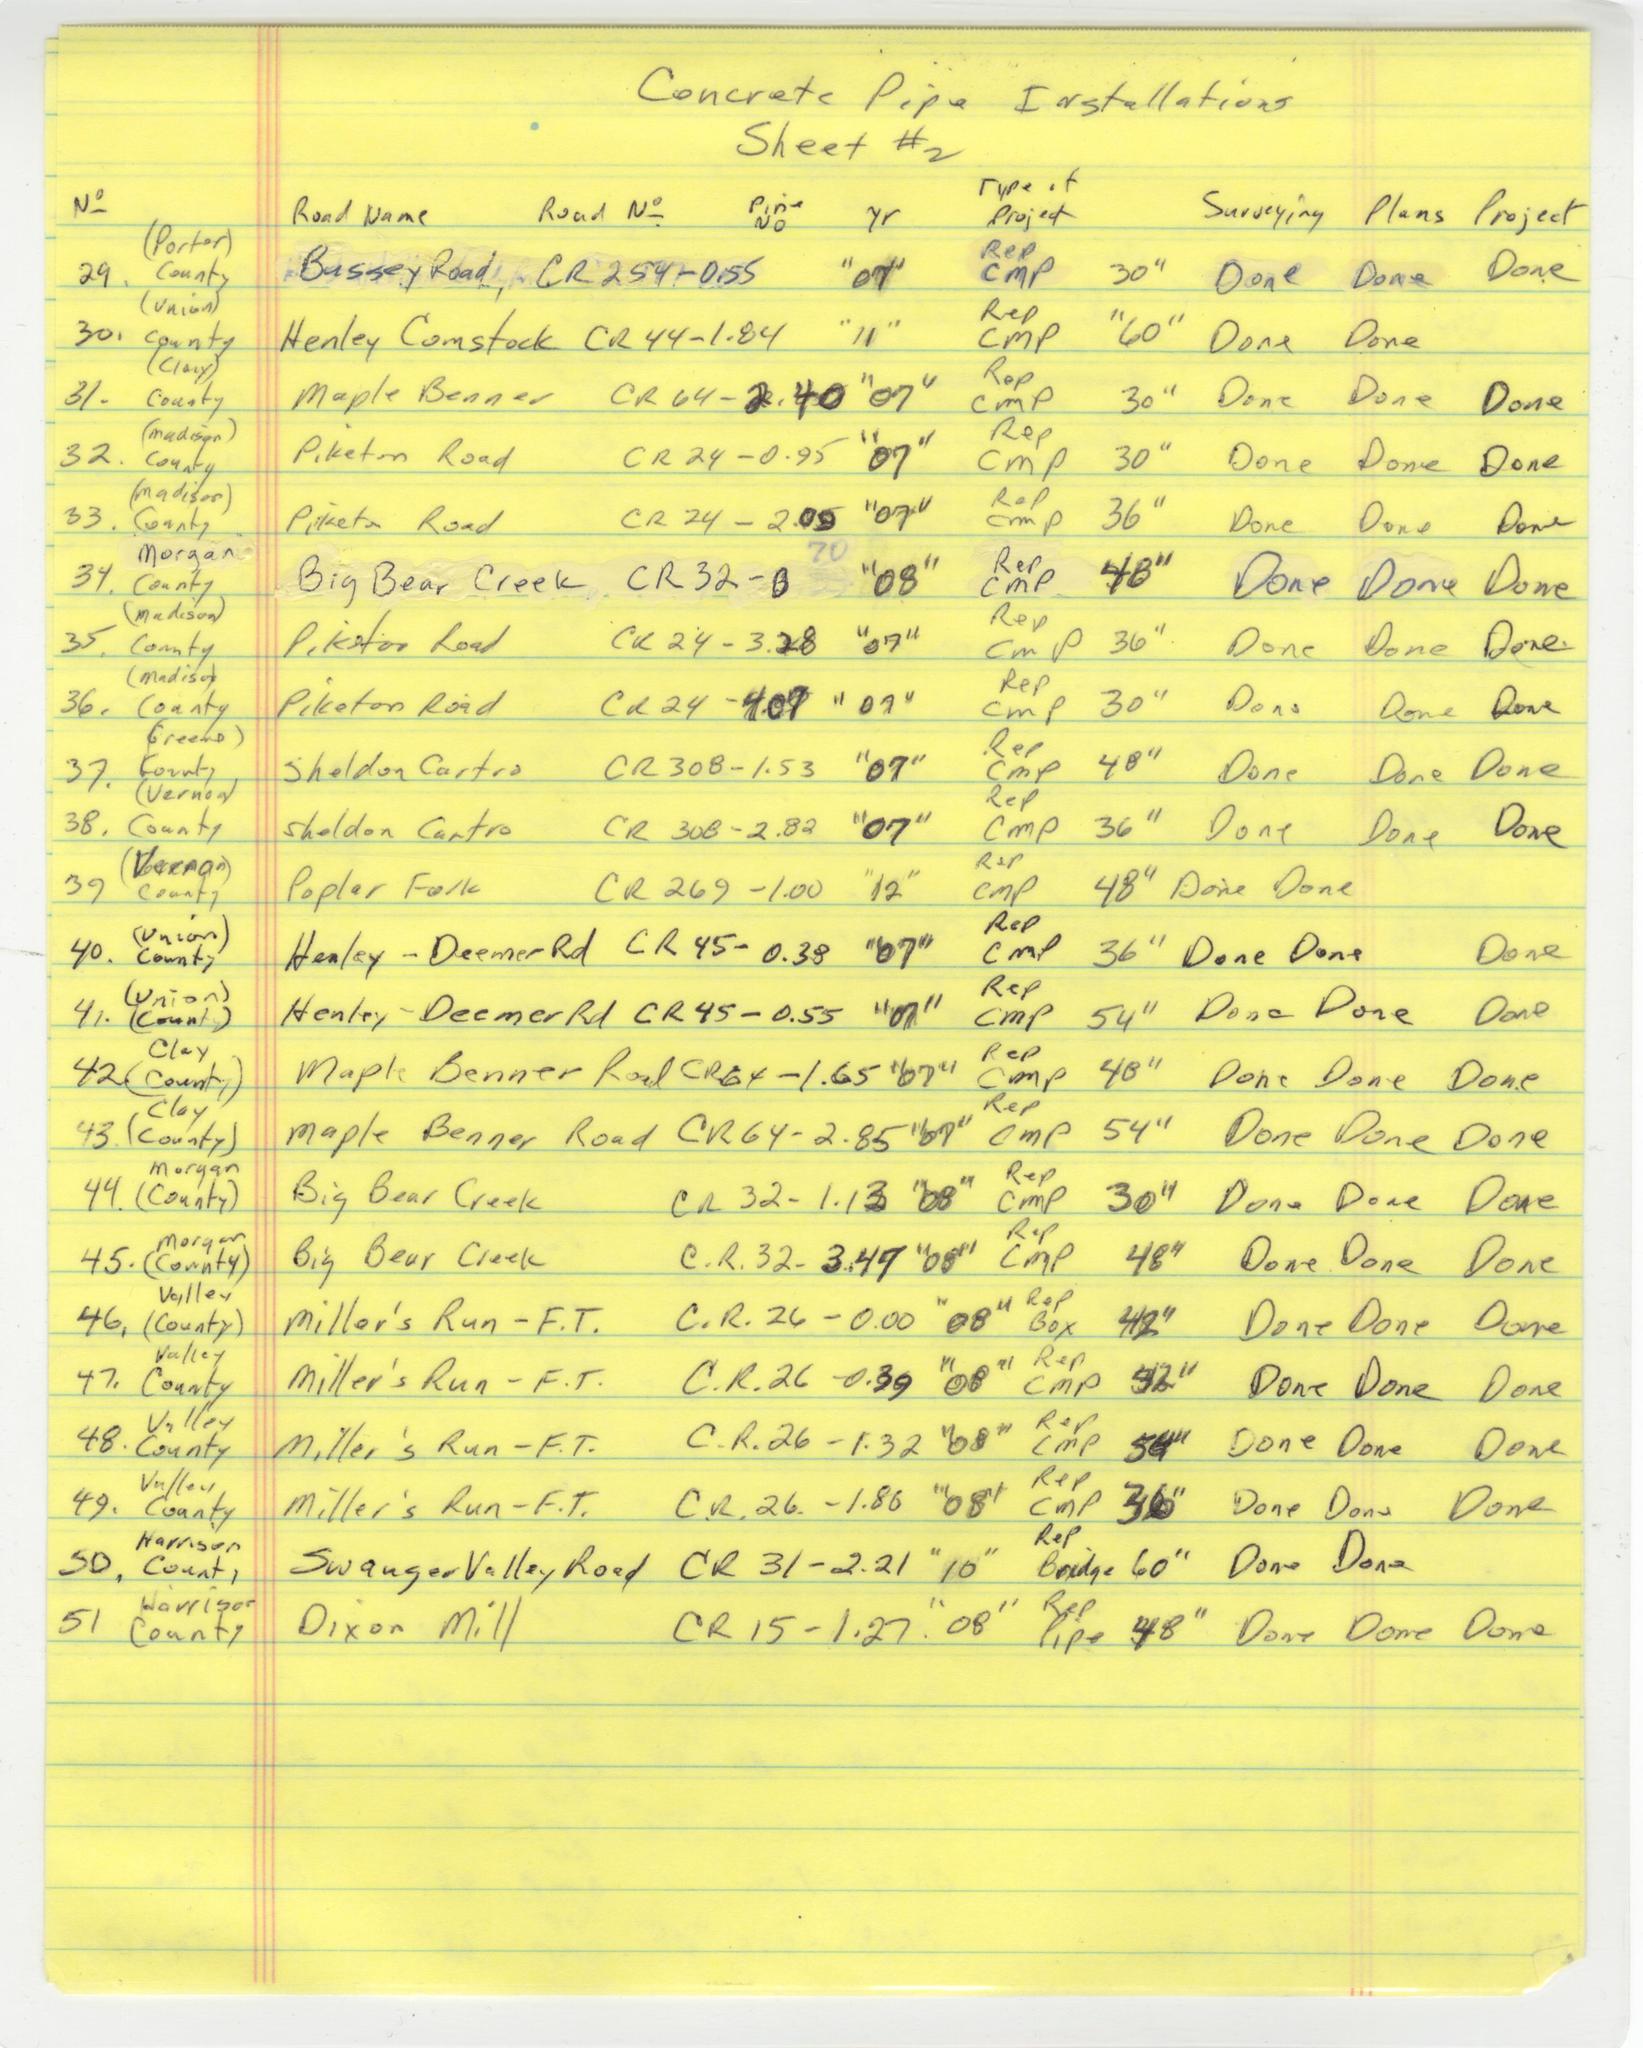 Concrete Pipe Installations
Sheet #2
No Road Name Road No Pipe No yr Type of Project Surveying Plans Project
29. (Porter) County Bussey Road, CR 254-0.55 "07" Rep CMP 30" Done Done Done
30. (Union) County Henley Comstock CR 44-1.84 "11" Rep CMP "60" Done Done
31. (Clay) County Maple Benner CR 64-2.40 "07" Rep CMP 30" Done Done Done
32. (Madison) County Piketon Road CR 24-0.95 "07" Rep CMP 30" Done Done Done
33. (Madison) County Piketon Road CR 24-2.05 "07" Rep CMP 36" Done Done Done
34. Morgan County Big Bear Creek CR 32-0 70 "08" Rep CMP 48" Done Done Done
35. (Madison) County Piketon Road CR 24-3.28 "07" Rep CMP 36" Done Done Done
36. (Madison) County Piketon Road CR 24-4.07 "07" Rep CMP 30" Done Done Done
37. Greene) County Sheldon Castro CR 308-1.53 "07" Rep CMP 48" Done Done Done
38. (Vernon) County Sheldon Castro CR 308-2.82 "07" Rep CMP 36" Done Done Done
39 (Vernon) County Poplar Fork CR 269-1.00 "12" Rep CMP 48" Done Done
40. (Union) County Henley-Deemer Rd CR 45-0.38 "07" Rep CMP 36" Done Done Done
41. (Union) (County) Henley-Deemer Rd CR 45-0.55 "07" Rep CMP 54" Done Done Done
42. Clay (County) Maple Benner Road CR 64-1.65 "07" Rep CMP 48" Done Done Done
43. Clay (County) Maple Benner Road CR 64-2.85 "07" Rep CMP 54" Done Done Done
44. Morgan (County) Big Bear Creek CR 32-1.13 "08" Rep CMP 30" Done Done Done
45. Morgan (County) Big Bear Creek C.R. 32-3.47 "08" Rep CMP 48" Done Done Done
46. Valley (County) Miller's Run-F.T. C.R. 26-0.00 "08" Rep Box 42" Done Done Done
47. Valley County Miller's Run-F.T. C.R. 26-0.39 "08" Rep CMP Done Done Done
48. Valley County Miller's Run-F.T. C.R. 26-1.32 "08" Rep CMP 54" Done Done Done
49. Valley County Miller's Run-F.T. C.R. 26.-1.86 "08" Rep CMP 36" Done Done Done
50. Harrison County Swanger Valley Road CR 31-2.21 "10" Rep Bridge 60" Done Done
51 Harrison County Dixon Mill CR 15-1.27. "08" Rep Pipe 48" Done Done Done